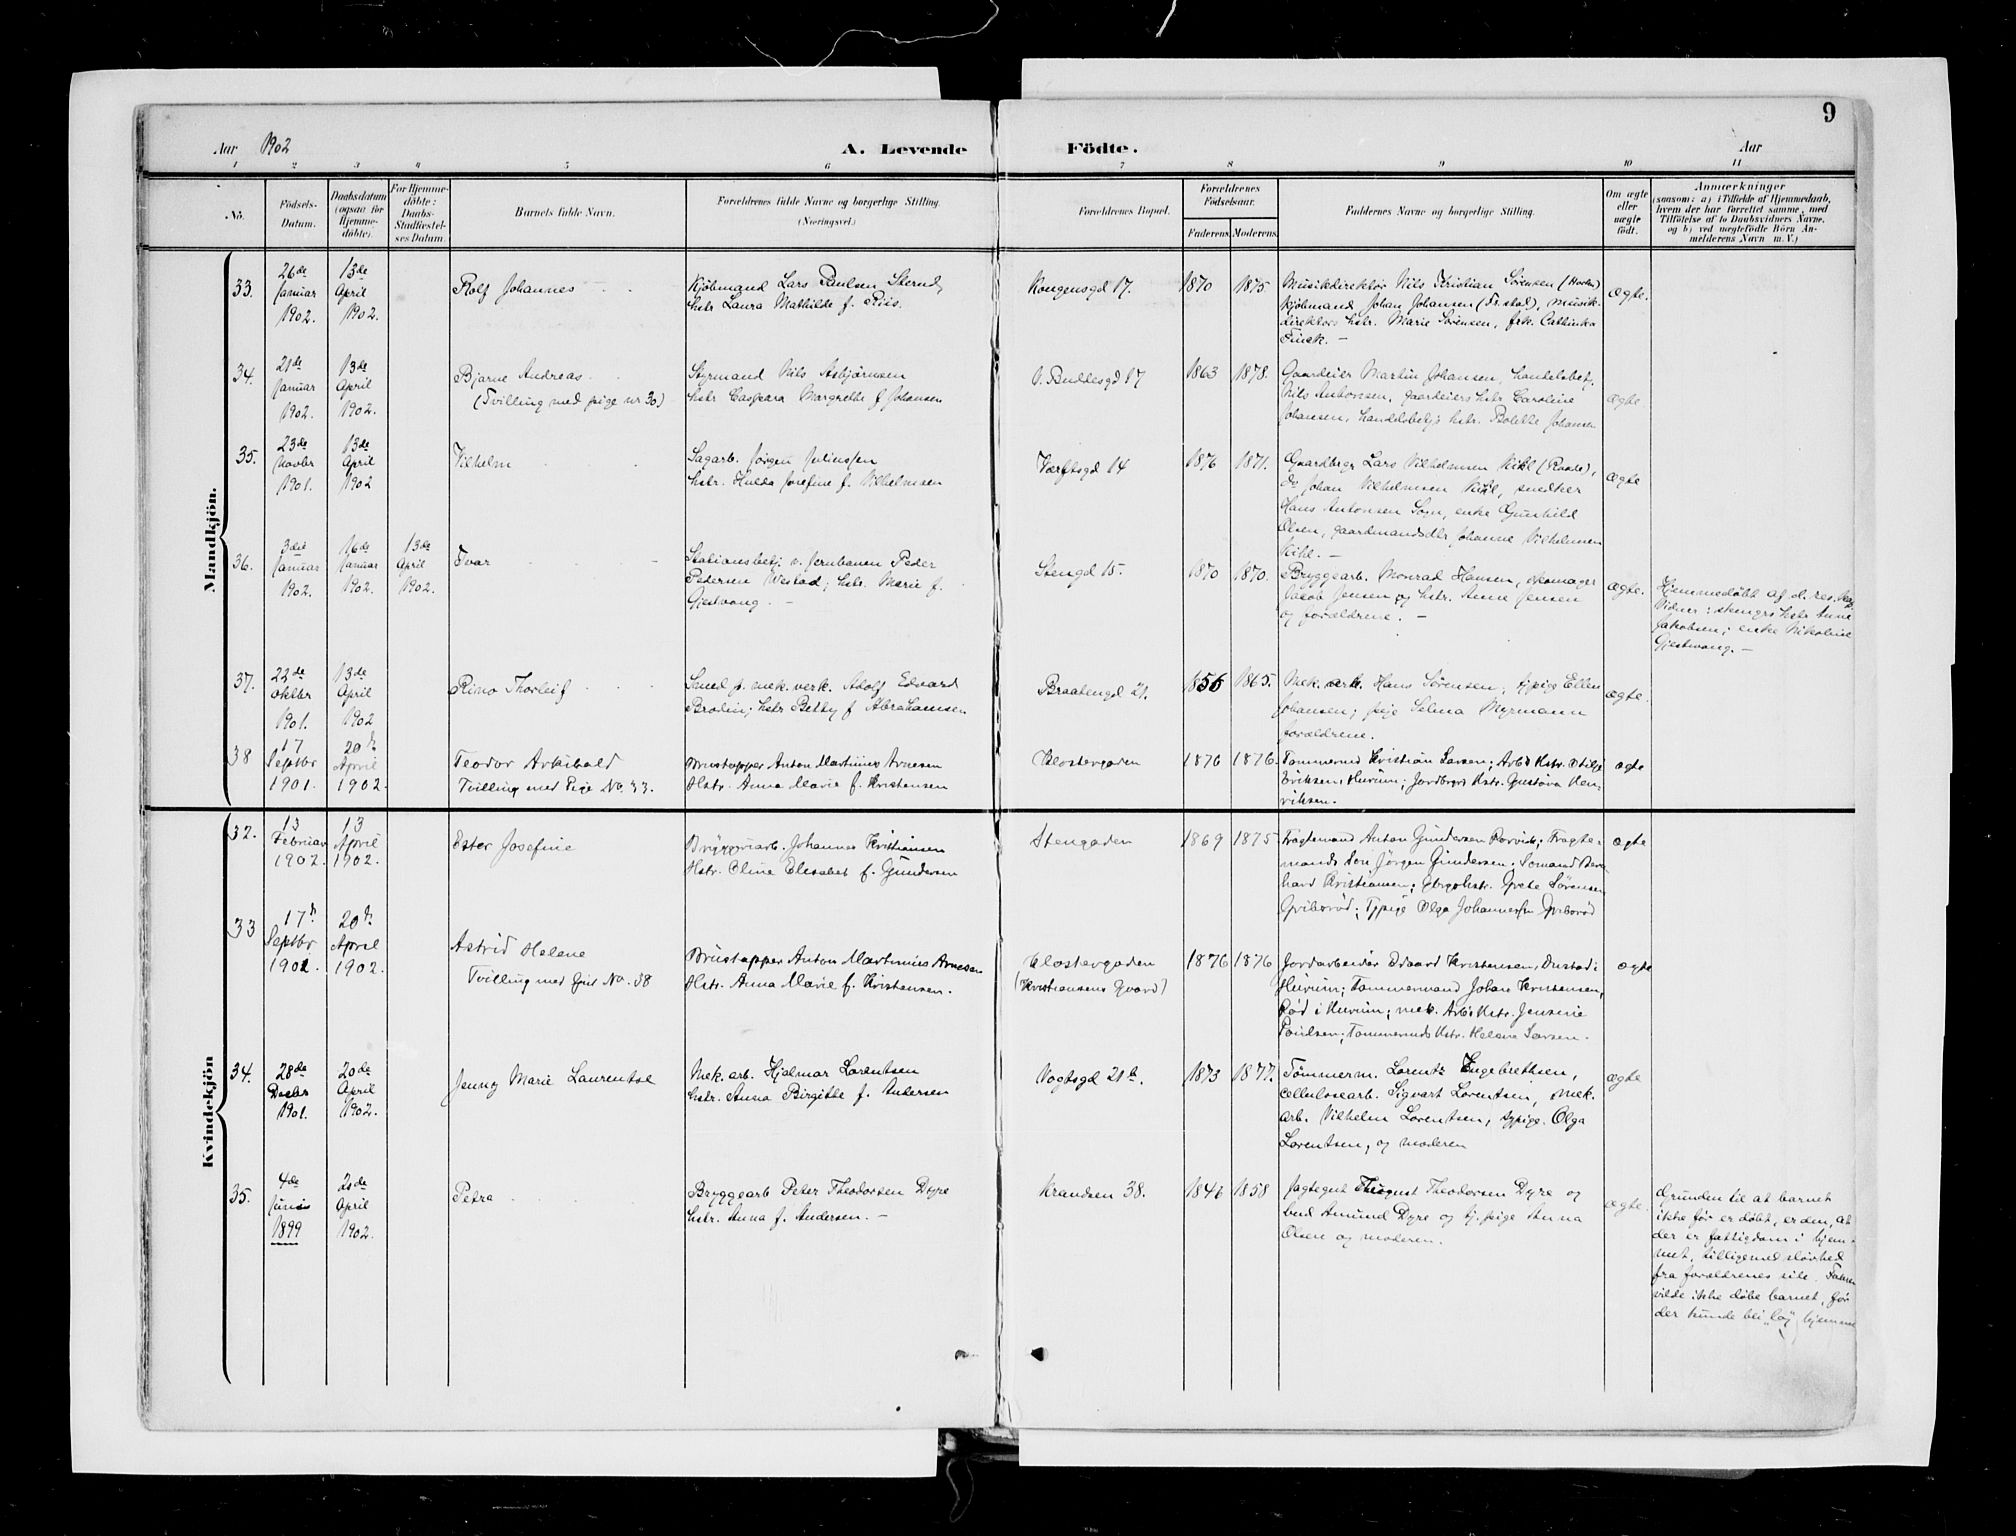 9
Aar 1902 A. Levende Födte. Aar
1 2 3 4 5 6 7 8 9 10 11
No.
Födsels-
Datum.
Daabsdatum
(ogsaa for
Hjemme-
döbte).
For Hjemme-
döbte:
Daabs-
Stadfæstel-
ses Datum.
Barnets fulde Navn.
Forældrenes fulde Navne og borgerlige Stilling.
(Næringsvei.)
Forældrenes Bopæl.
Forældrenes
Födselsaar.
Faderens. Moderens.
Faddernes Navne og borgerlige Stilling.
Om ægte
eller
uægte
födt.
Anmærkninger
(saasom: a) i Tilfælde af Hjemmedaab,
hvem der har forrettet samme, med
Tilföielse af to Daabsvidners Navne,
og b) ved uægtefödte Börn An-
melderens Navn m. V.)
Mandkjön.
33.
26de
Januar
1902.
13de
April
1902.
Rolf Johannes
Kjöbmand Lars Paulsen
hstr Laura Mathilde f. Riis.
Kongensgd 17.
1870 1875
Musikdirektör Nils Kristian Sörensen (Horten)
Kjöbmand Johan Johansen (Fr.stad), Musik-
direktörs hstr. Marie Sörensen, frk. Cathinka
Finck. —
ægte.
34.
21de
Januar
1902.
13de
April
1902.
Bjarne Andreas
(Tvilling med pige nr 30.)
Styrmand Nils Asbjörnsen
hstr Caspara Margrethe f Johansen
V. Buddesgd 17
1863 1878.
Gaardeier Martin Johansen, handelsbetj.
Nils Antonsen, gaardeiers hstr Caroline
Johansen, handelsbetjs hstr. Bolette Johansen
ægte
35.
23de
Novbr
1901.
13de
April
1902
Vilhelm
Sagarb. Jörgen Juliussen
hstr. Hulda Josefine f. Vilhelmsen
Værftsgd 14
1876 1871.
Gaardbrgr Lars Vilhelmsen Kihl (Raade),
do Johan Vilhelmsen Kihl, snedker
Hans Antonsen Sogn, enke Gunhild
Olsen, gaardmandsdtr Johanne Vilhelmsen
Kihl. —
ægte
36.
3die
Januar
1902.
16de
Januar
1902.
13de
April
1902.
Ivar
Stationsbetj. v. Jernbanen Peder
Pedersen Westad; hstr. Marie f.
Gjestvang. —
Stengd 15.
1870 1870.
Bryggearb. Monrad Hansen, skomager
Jakob Jensen og hstr. Anne Jensen
og forældrene. —
ægte.
Hjemmedöbt af d. res. kap.
Vidner: hstr Anne
Jakobsen; enke Nikoline
Gjestvang. —
37.
22de
oktbr
1901.
13de
April
1902
Rino Thorleif
Smed p. mek. verk. Adolf Edvard
Brodin; hstr Betty f Abrahamsen
Braatengd 21.
1856 1865.
Mek. arb. Hans Sörensen; tj.pige Ellen
Johansen; pige Selma Myrmann
forældrene.
ægte.
38
17
Septbr
1901.
20de
April
1902.
Teodor Arkibald
Tvilling med Pige No. 33.
Brustapper Anton Martinius Arnesen
Hstr. Anna Marie f. Kristensen
Klostergaden
1876 1876.
Tømmermd Kristian Larsen; Arbd. Hstr.
Eriksen, Hurum; Jordbrgrs Hstr. Gustava Hen-
riksen.
ægte
Kvindekjön
32.
13
Februar
1902.
13
April
1902.
Ester Josefine
Bryggeriarb. Johannes Kristiansen
Hstr. Oline Elisabet f. Gundersen
Stengaden
1869 1875
Fragtemand Anton Gundersen Rørvik; Fragte-
mands Søn Jörgen Gundersen; Sømand Bern-
hard Kristiansen; Gbrgs Hstr. Grete Sörensen
Griberød; Tjpige Olga Johannessen Griberød
ægte
33
17de
Septbr
1901.
20de
April
1902.
Astrid Helene
Tvilling med Gut No. 38
Brustapper Anton Martinius Arnesen
Hstr. Anna Marie f. Kristensen.
Klostergaden
(Kristiansens Gaard)
1876 1876
Jordarbeider Edvard Kristensen, i
Hurum; Tømmermand Johan Kristensen,
Rød i Hurum; mek. Arb.s Hstr. Jensine
Poulsen; Tømmermds Hstr. Helene Larsen.
ægte
34.
28de
Decbr
1901.
20de
April
1902.
Jenny Marie Laurentse
Mek. arb. Hjalmar Lorentsen
hstr. Anna Birgitte f. Andersen
Vogtsgd 21b.
1873 1877.
Tömmerm. Lorentz Engebrethsen,
cellulosearb. Sigvart Lorentsen, Mek.
arb. Vilhelm Lorentsen, sypige. Olga
Lorentsen, og moderen
ægte
35.
4de
Juni
1899
20de
April
1902.
Petra
Bryggearb Peter Theodorsen Dyre
hstr. Anna f. Andersen. —
Krandsen 38.
1846 1858
Jagtegut August Theodorsen Dyre og
bud Amund Dyre og tj.pige Anna
Olsen og moderen.
ægte.
Grunden til at barnet
ikke för er döbt, er den, at
der er fattigdom i hjem-
met, tilligemed slövhed
fra forældrenes side. Faderen
vilde ikke döbe barnet, för
der kunde bli "lag" hjemme